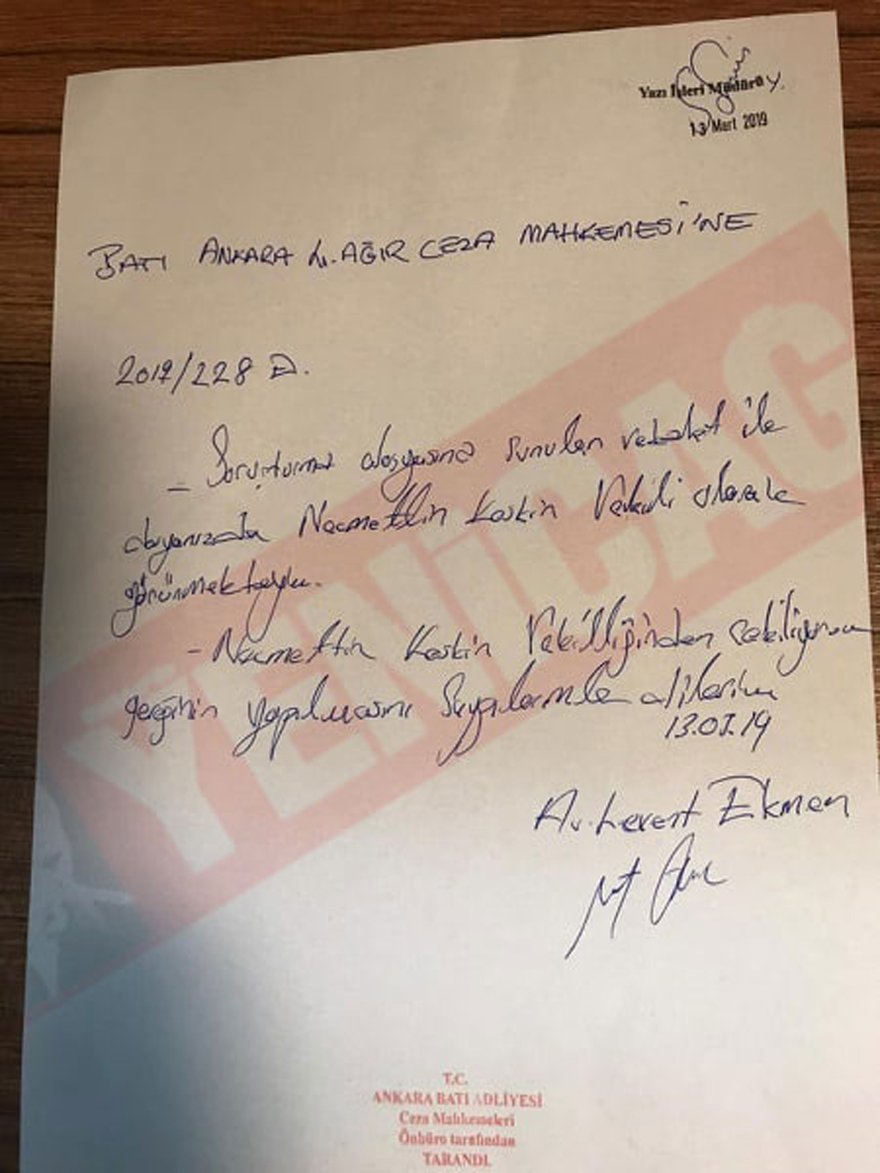 Yazı İşleri Müdürü Y.
13 Mart 2019
BATI ANKARA 4. AĞIR CEZA MAHKEMESİ'NE
2017/228 D.
- Soruşturma dosyasına sunulan vekalet ile
dosyanızda Necmettin Keskin Vekili olarak
görünmekteyiz.
- Necmettin Keskin Vekilliğinden çekiliyorum
gereğinin yapılmasını saygılarımla dilerim
13.03.19
Av. Levent Ekmen
YENİÇAĞ
T.C.
ANKARA BATI ADLİYESİ
Ceza Mahkemeleri
Önbüro tarafından
TARANDI.